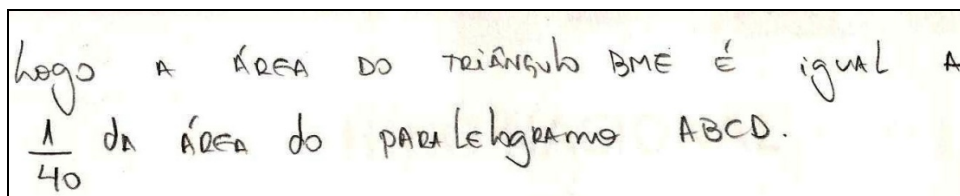 Logo A ÁREA DO TRIÂNGULO BME É igUAL A
1/40 dA ÁREA do PARALELOGRAMO ABCD.